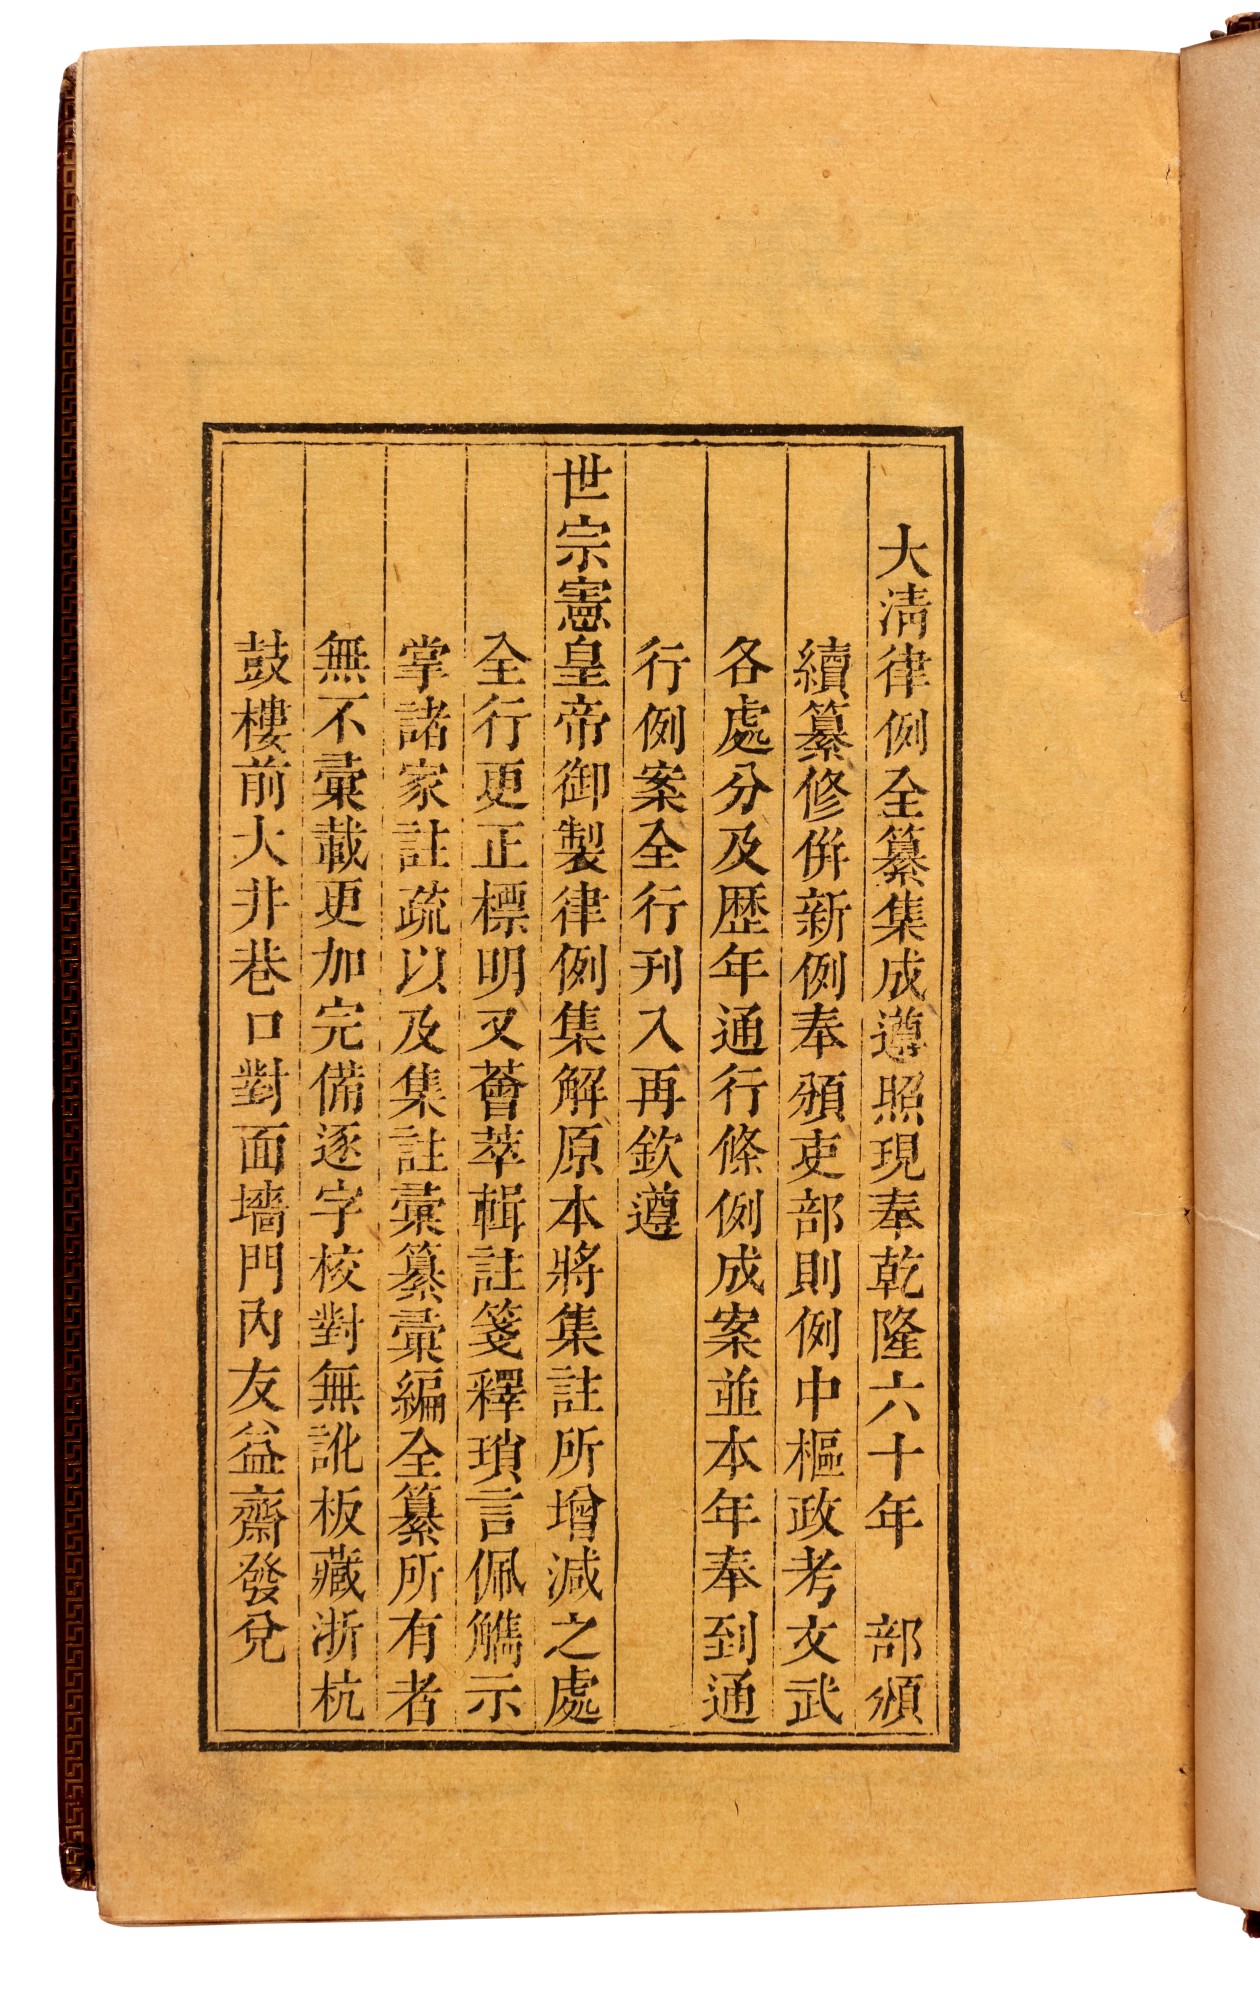 大淸律例全纂集成遵照現奉乾隆六十年　部頒
續纂修倂新例奉頒吏部則例中樞政考文武
各處分及歷年通行條例成案並本年奉到通
行例案全行刋入再欽遵
世宗憲皇帝御製律例集解原本將集註所增減之處
全行更正標明又薈萃輯註箋釋瑣言佩觿示
掌諸家註疏以及集註彚纂彚編全纂所有者
無不彚載更加完備逐字校對無訛板藏浙杭
鼓樓前大井巷口對面墻門內友益齋發兌